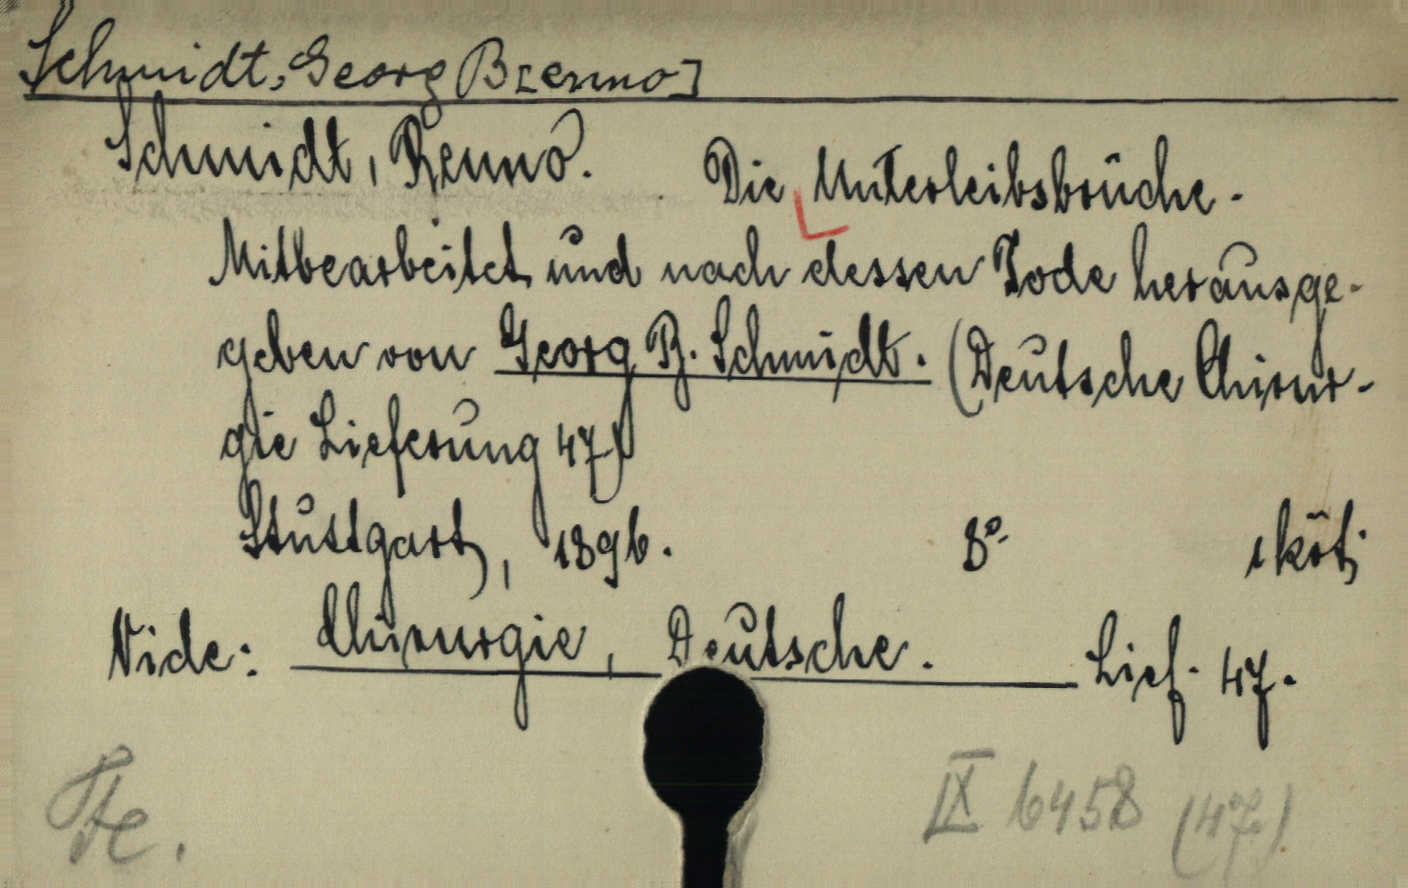 Schmidt, Georg B[enno]
Schmidt, Benno. Die Unterleibsbrüche.
Mitbearbeitet und nach dessen Tode herausge-
geben von Georg B. Schmidt. (Deutsche Chirur-
gie Lieferung 47)
Stuttgart, 1896. 8° 1 köt.
Vide: Chirurgie, Deutsche. Lief. 47.
IX 6458 (47)